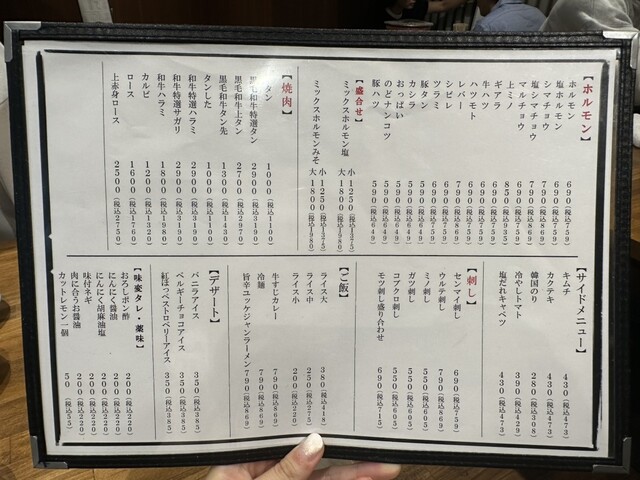 【ホルモン】
ホルモン 690(税込759)
塩ホルモン 690(税込759)
シマチョウ 790(税込869)
塩シマチョウ 790(税込869)
マルチョウ 690(税込759)
上ミノ 850(税込935)
ギアラ 690(税込759)
牛ハツ 690(税込759)
ハツモト 690(税込759)
レバー 790(税込869)
シビレ 690(税込759)
ツラミ 690(税込759)
豚タン 590(税込649)
カシラ 590(税込649)
おっぱい 590(税込649)
のどナンコツ 590(税込649)
豚ハツ 590(税込649)
【盛合せ】
ミックスホルモン塩 小1250(税込1375)
大1800(税込1980)
ミックスホルモンみそ 小1250(税込1375)
大1800(税込1980)
【焼肉】
タン 1000(税込1100)
黒毛和牛特選タン 2900(税込3190)
黒毛和牛上タン 2700(税込2970)
黒毛和牛タン先 1300(税込1430)
タンした 1000(税込1100)
和牛特選ハラミ 2900(税込3190)
和牛特選サガリ 2900(税込3190)
和牛ハラミ 1800(税込1980)
カルビ 1200(税込1320)
ロース 1600(税込1760)
上赤身ロース 2500(税込2750)
【サイドメニュー】
キムチ 430(税込473)
カクテキ 430(税込473)
韓国のり 280(税込308)
冷やしトマト 390(税込429)
塩だれキャベツ 430(税込473)
【刺し】
センマイ刺し 690(税込759)
ウルテ刺し 790(税込869)
ミノ刺し 550(税込605)
ガツ刺し 550(税込605)
コブクロ刺し 550(税込605)
モツ刺し盛り合わせ 690(税込715)
【ご飯】
ライス大 380(税込418)
ライス中 250(税込275)
ライス小 200(税込220)
牛すじカレー 790(税込869)
冷麺 790(税込869)
旨辛ユッケジャンラーメン 790(税込869)
【デザート】
バニラアイス 350(税込385)
ベルギーチョコアイス 350(税込385)
紅ほっぺストロベリーアイス 350(税込385)
【味変タレ・薬味】
おろしポン酢 200(税込220)
にんにく醤油 200(税込220)
にんにく胡麻油塩 200(税込220)
味付ネギ 200(税込220)
肉に合うお醤油 200(税込220)
カットレモン一個 50(税込55)